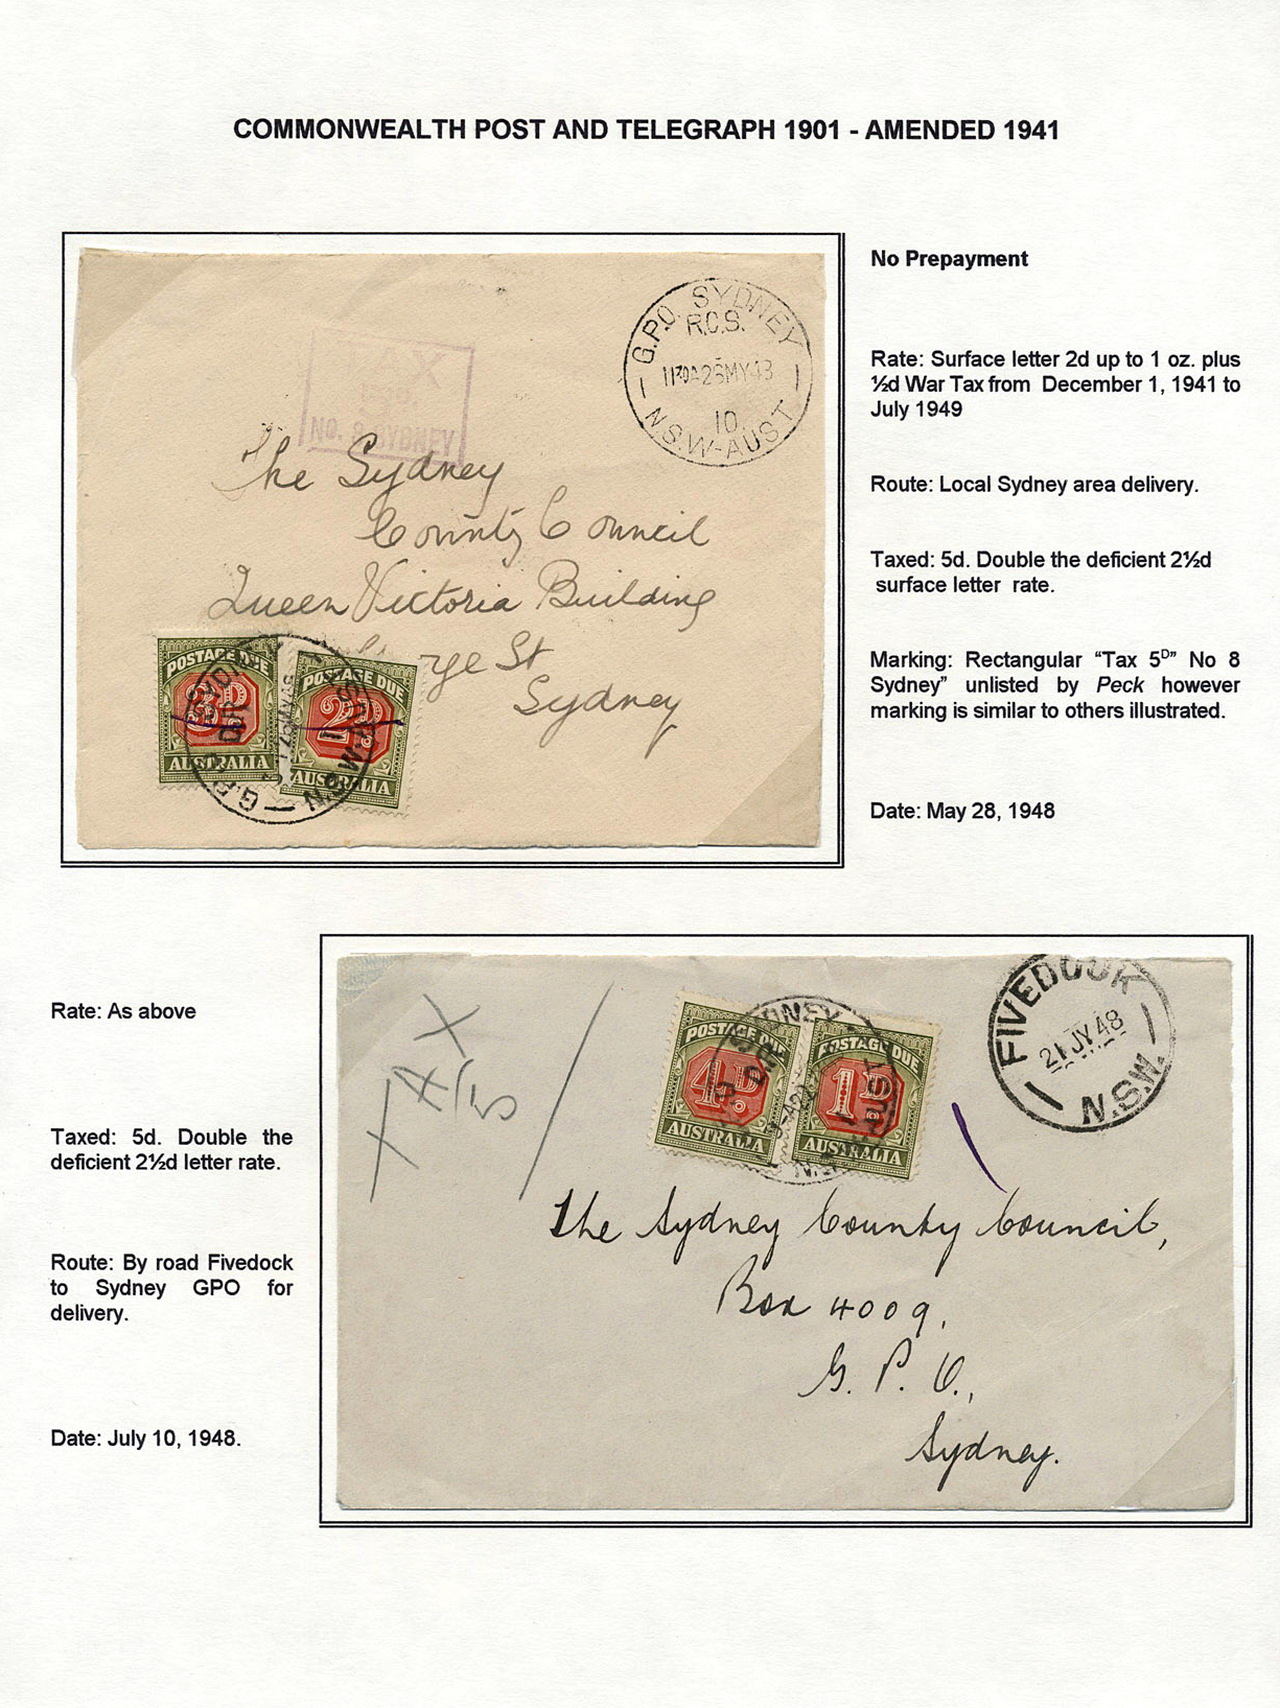 COMMONWEALTH POST AND TELEGRAPH 1901 - AMENDED 1941
No Prepayment
Rate: Surface letter 2d up to 1 oz. plus
½d War Tax from December 1, 1941 to
July 1949
Route: Local Sydney area delivery.
Taxed: 5d. Double the deficient 2½d
surface letter rate.
Marking: Rectangular “Tax 5ᴰ” No 8
Sydney” unlisted by Peck however
marking is similar to others illustrated.
Date: May 28, 1948
G.P.O. SYDNEY
R.C.S.
10
N.S.W-AUST
AX
NO. 8 SYDNEY
The Sydney
County Council
Queen Victoria Building
St
Sydney
POSTAGE DUE
3D.
AUSTRALIA
POSTAGE DUE
2D.
AUSTRALIA
Rate: As above
Taxed: 5d. Double the
deficient 2½d letter rate.
Route: By road Fivedock
to Sydney GPO for
delivery.
Date: July 10, 1948.
TAX
5
POSTAGE DUE
4D.
AUSTRALIA
POSTAGE DUE
1D.
AUSTRALIA
FIVEDOCK
21 JY 48
N.S.W.
The Sydney County Council,
Box 4009,
G. P. O.,
Sydney.